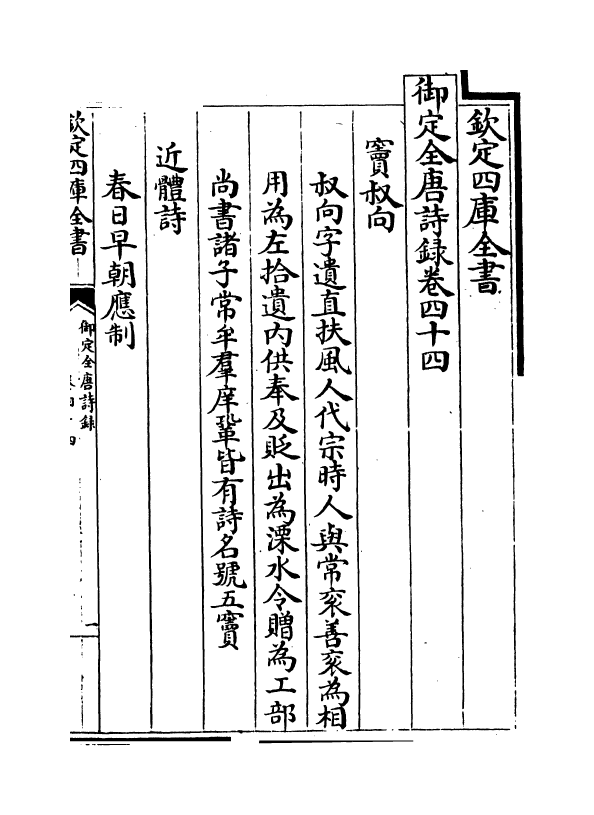 欽定四庫全書
御定全唐詩録卷四十四
竇叔向
叔向字遺直扶風人代宗時人與常衮善衮為相
用為左拾遺内供奉及貶出為溧水令贈為工部
尚書諸子常牟羣庠鞏皆有詩名號五竇
近體詩
春日早朝應制
欽定四庫全書
御定全唐詩録